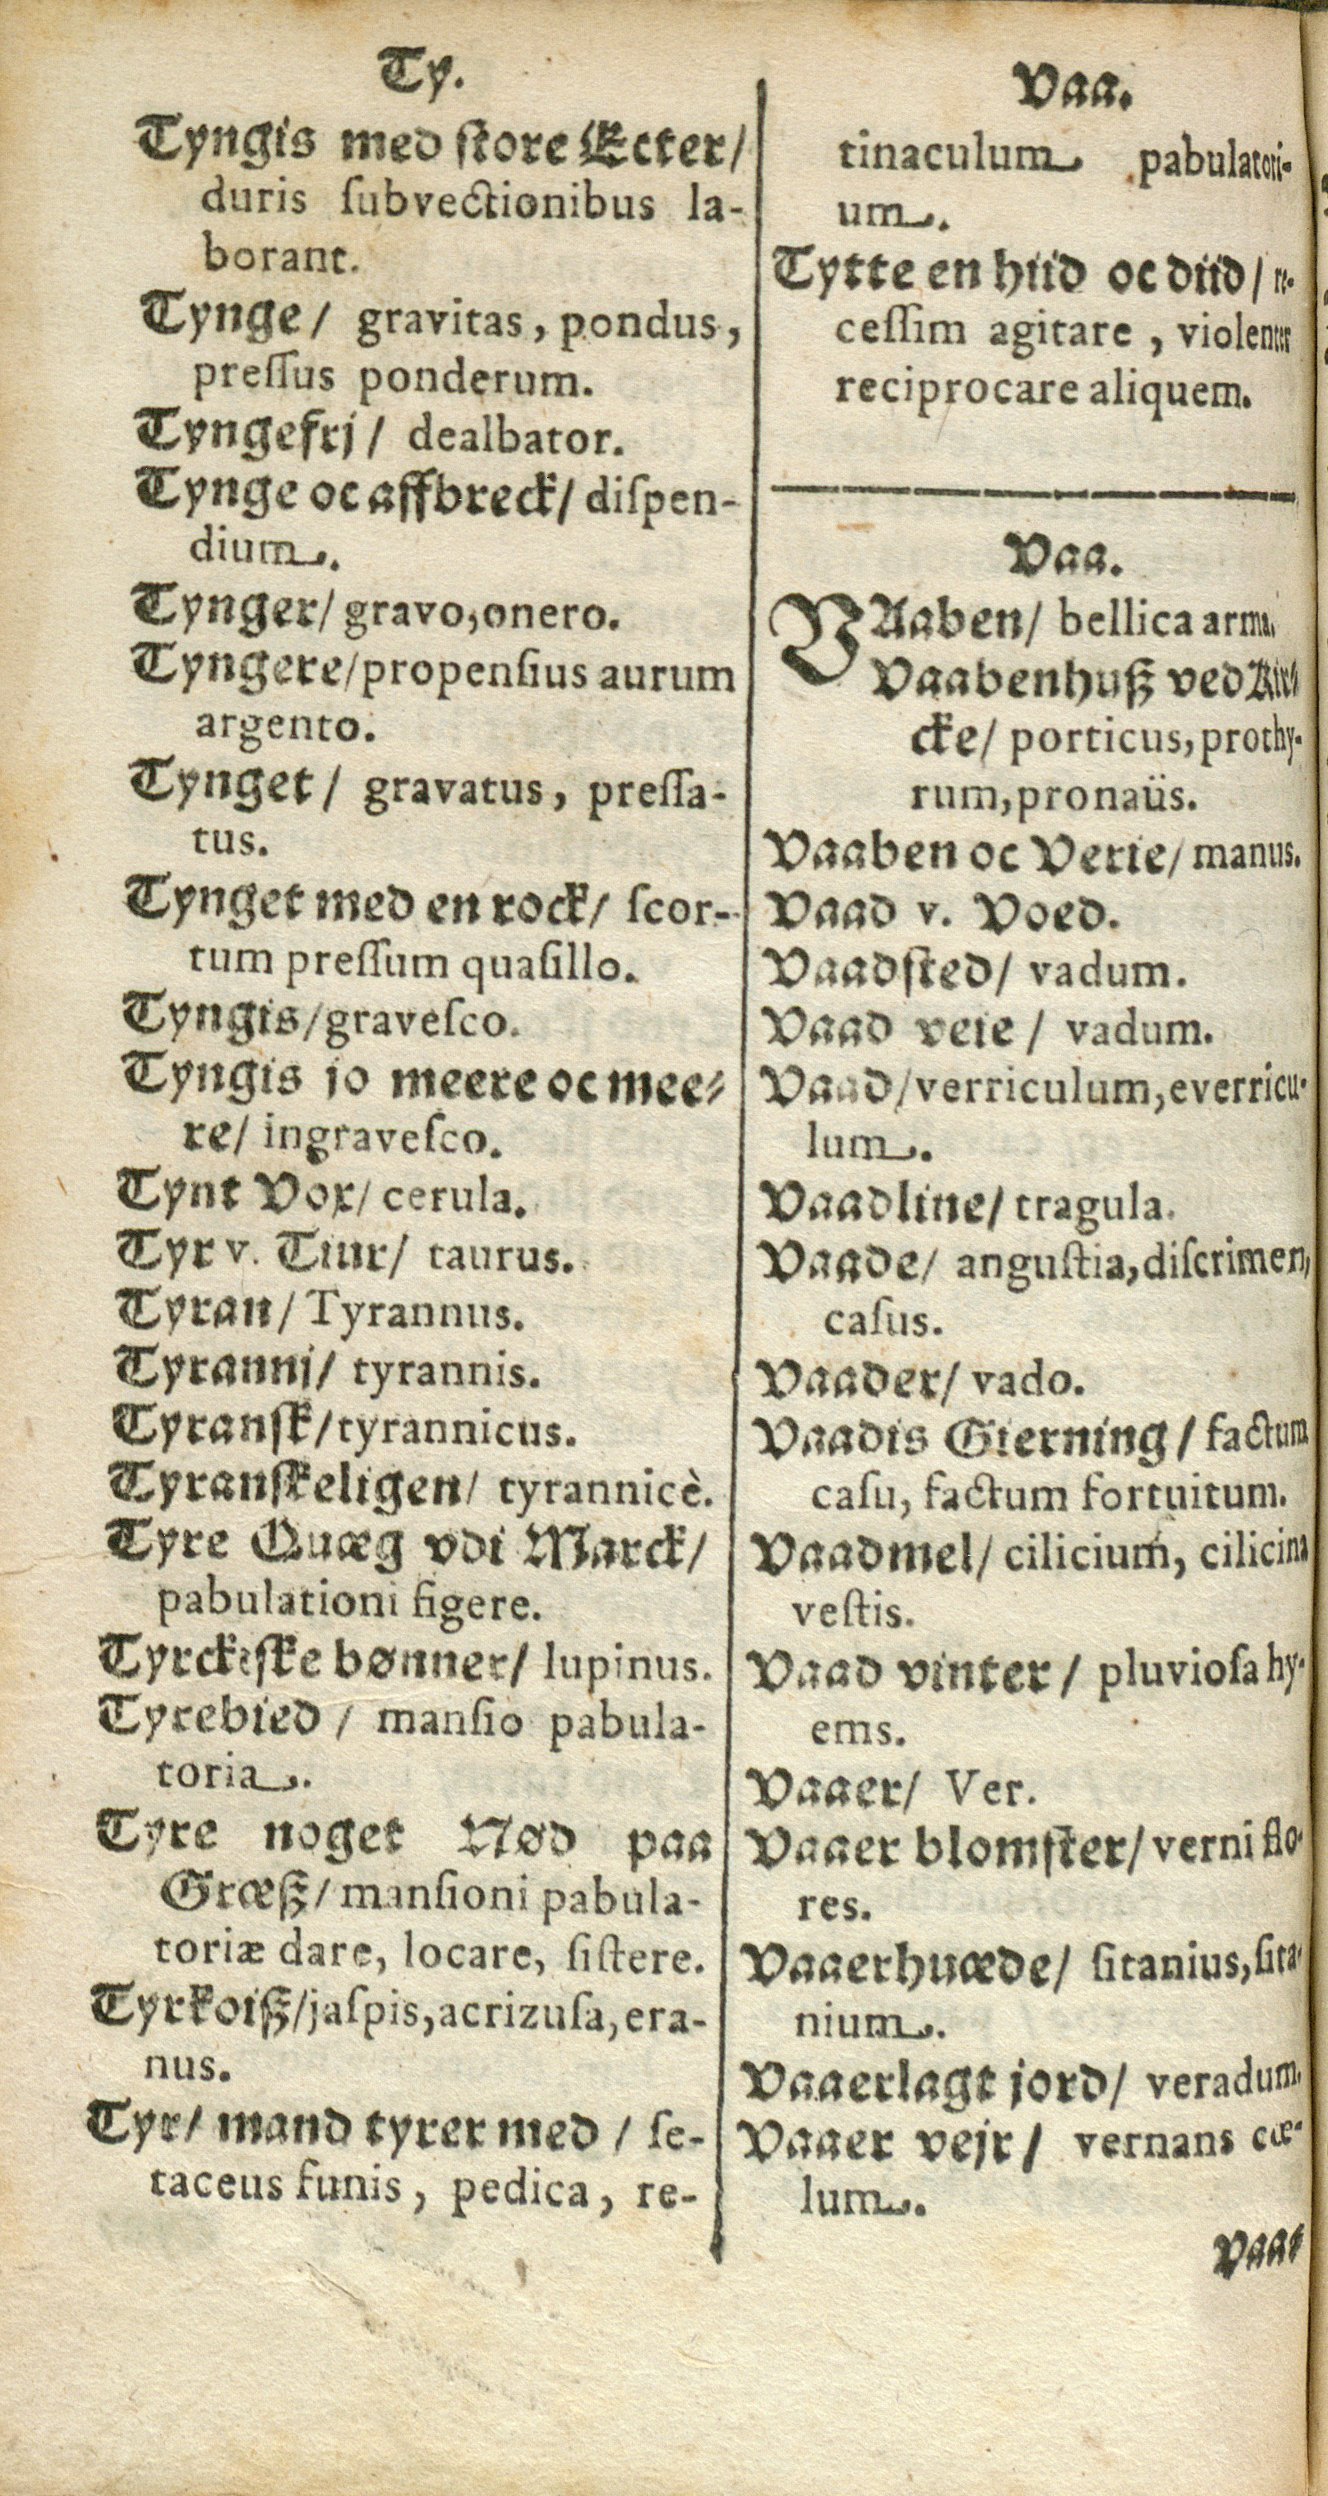 Ty.
Tyngis med ſtore Ecter/
duris ſubvectionibus la-
borant.
Tynge/ gravitas, pondus,
preſſus ponderum.
Tyngefrj/ dealbator.
Tynge oc affbreck/ diſpen-
dium.
Tynger/ gravo, onero.
Tyngere/ propenſius aurum
argento.
Tynget/ gravatus, preſſa-
tus.
Tynget med en rock/ ſcor-
tum preſſum quaſillo.
Tyngis/ graveſco.
Tyngis jo meere oc mee-
re/ ingraveſco.
Tynt Vox/ cerula.
Tyr v. Tiur/ taurus.
Tyran/ Tyrannus.
Tyranni/ tyrannis.
Tyranſk/ tyrannicus.
Tyranſkeligen/ tyrannicè.
Tyre Quæg vdi Marck/
pabulationi figere.
Tyrckeſke bønner/ lupinus.
Tyrebied/ manſio pabula-
toria.
Tyre noget Nød paa
Græſz/ manſioni pabula-
toriæ dare, locare, ſiſtere.
Tyrkoiſz/ jaſpis, acrizuſa, era-
nus.
Tyr/ mand tyrer med/ ſe-
taceus funis, pedica, re-
Vaa.
tinaculum pabulatori-
um.
Tytte en hiid oc diid/ re-
ceſſim agitare, violenter
reciprocare aliquem.
Vaa.
VAaben/ bellica arma.
Vaabenhuſz ved Kir-
cke/ porticus, prothy-
rum, pronaüs.
Vaaben oc Verie/ manus.
Vaad v. Voed.
Vaadſted/ vadum.
Vaad veie/ vadum.
Vaad/ verriculum, everricu-
lum.
Vaadline/ tragula.
Vaade/ anguſtia, diſcrimen,
caſus.
Vaader/ vado.
Vaadis Gierning/ factum
caſu, factum fortuitum.
Vaadmel/ cilicium, cilicina
veſtis.
Vaad vinter/ pluvioſa hy-
ems.
Vaaer/ Ver.
Vaaer blomſter/ verni flo-
res.
Vaaerhuæde/ ſitanius, ſita-
nium.
Vaaerlagt jord/ veradum.
Vaaer vejr/ vernans cœ-
lum.